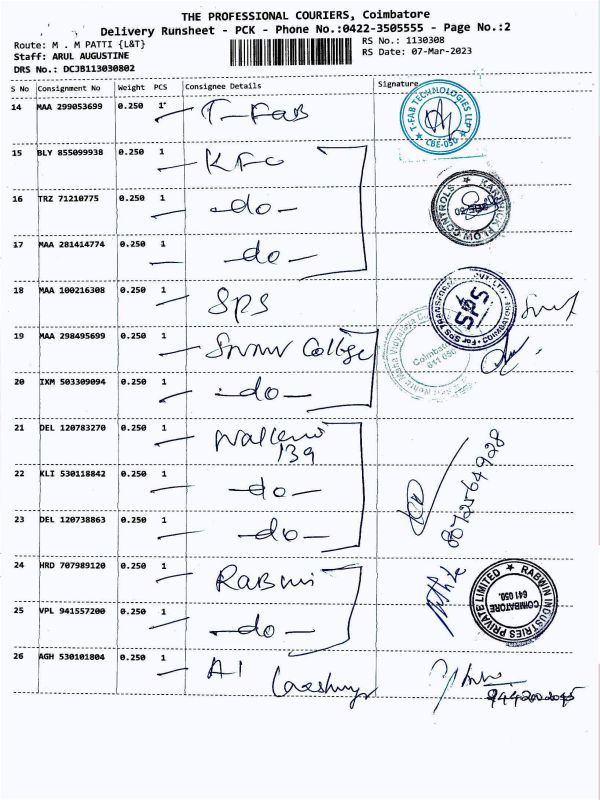 THE PROFESSIONAL COURIERS, Coimbatore
Delivery Runsheet - PCK - Phone No.:0422-3505555 - Page No.:2
Route: M . M PATTI {L&T}
RS No.: 1130308
Staff: ARUL AUGUSTINE
RS Date: 07-Mar-2023
DRS No.: DCJB113030802
S No Consignment No Weight PCS Consignee Details Signature
14 MAA 299053699 0.250 1 T-FAB
T-FAB TECHNOLOGIES LLP
CBE-050
15 BLY 855099938 0.250 1 KFC
16 TRZ 71210775 0.250 1 -do-
FLOW CONTROLS
17 MAA 281414774 0.250 1 -do-
18 MAA 100216308 0.250 1 SPS
For SPS TRANSFORMERS PVT. LTD.
COIMBATORE
SPS
19 MAA 298495699 0.250 1 SNMV College
Coimbatore
641 050
20 IXM 503309094 0.250 1 -do-
21 DEL 120783270 0.250 1
139
22 KLI 530118842 0.250 1 -do-
8072564928
23 DEL 120738863 0.250 1 -do-
24 HRD 707989120 0.250 1 RABWIN
RABWIN INDUSTRIES PRIVATE LIMITED
COIMBATORE
641 050.
25 VPL 941557200 0.250 1 -do-
26 AGH 530101804 0.250 1 AI